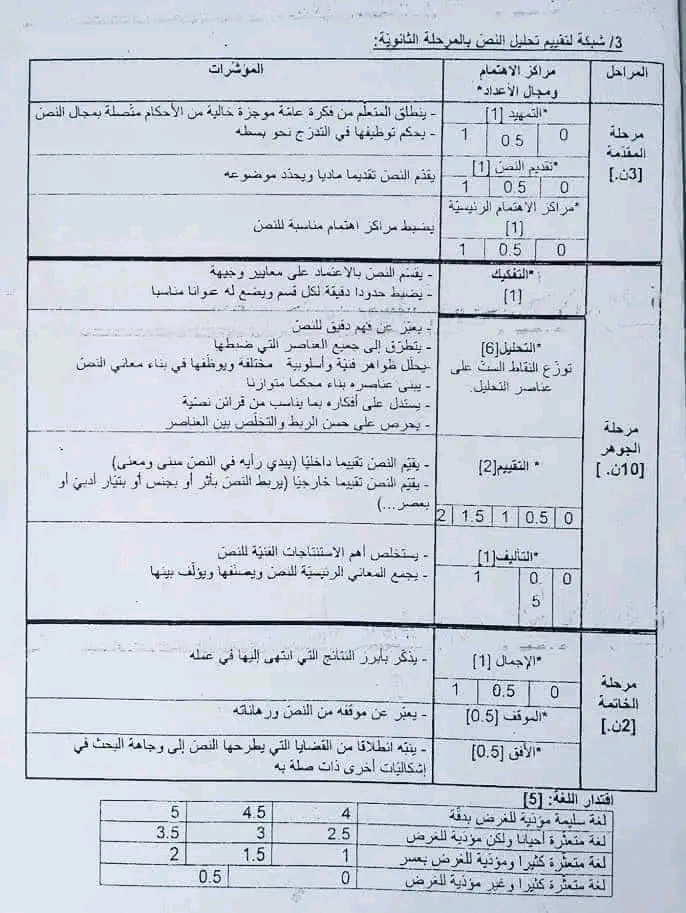 3/ شبكة لتقييم تحليل النصّ بالمرحلة الثانويّة:
المراحل
مراكز الاهتمام
ومجال الأعداد*
المؤشّرات
مرحلة
المقدّمة
[3ن.]
*التمهيد [1]
0 0.5 1
- ينطلق المتعلّم من فكرة عامّة موجزة خالية من الأحكام متّصلة بمجال النصّ
- يحكم توظيفها في التدرّج نحو بسطه
*تقديم النصّ [1]
0 0.5 1
يقدّم النصّ تقديما ماديا ويحدّد موضوعه
*مراكز الاهتمام الرئيسيّة
[1]
0 0.5 1
يضبط مراكز اهتمام مناسبة للنصّ
مرحلة
الجوهر
[10ن.]
*التفكيك
[1]
- يقسّم النصّ بالاعتماد على معايير وجيهة
- يضبط حدودا دقيقة لكلّ قسم ويضع له عنوانا مناسبا
*التحليل[6]
توزّع النقاط الستّ على
عناصر التحليل.
- يعبّر عن فهم دقيق للنصّ
- يتطرّق إلى جميع العناصر التي ضبطها
-يحلّل ظواهر فنيّة وأسلوبية مختلفة ويوظّفها في بناء معاني النصّ
- يبني عناصره بناء محكما متوازنا
- يستدلّ على أفكاره بما يناسب من قرائن نصيّة
- يحرص على حسن الربط والتخلّص بين العناصر
* التقييم[2]
0 0.5 1 1.5 2
- يقيّم النصّ تقييما داخليّا (يبدي رأيه في النصّ مبنى ومعنى)
- يقيّم النصّ تقييما خارجيّا (يربط النصّ بأثر أو بجنس أو بتيّار أدبيّ أو
بعصر...)
*التأليف[1]
0 0. 1
5
- يستخلص أهم الاستنتاجات الفنيّة للنصّ
- يجمع المعاني الرئيسيّة للنصّ ويصنّفها ويؤلّف بينها
مرحلة
الخاتمة
[2ن.]
*الإجمال [1]
0 0.5 1
- يذكّر بأبرز النتائج التي انتهى إليها في عمله
*الموقف [0.5]
- يعبّر عن موقفه من النصّ ورهاناته
*الأفق [0.5]
- ينبّه انطلاقا من القضايا التي يطرحها النصّ إلى وجاهة البحث في
إشكاليّات أخرى ذات صلة به
اقتدار اللغة: [5]
لغة سليمة مؤدّية للغرض بدقّة 4 4.5 5
لغة متعثّرة أحيانا ولكن مؤدّية للغرض 2.5 3 3.5
لغة متعثّرة كثيرا ومؤدّية للغرض بعسر 1 1.5 2
لغة متعثّرة كثيرا وغير مؤدّية للغرض 0 0.5